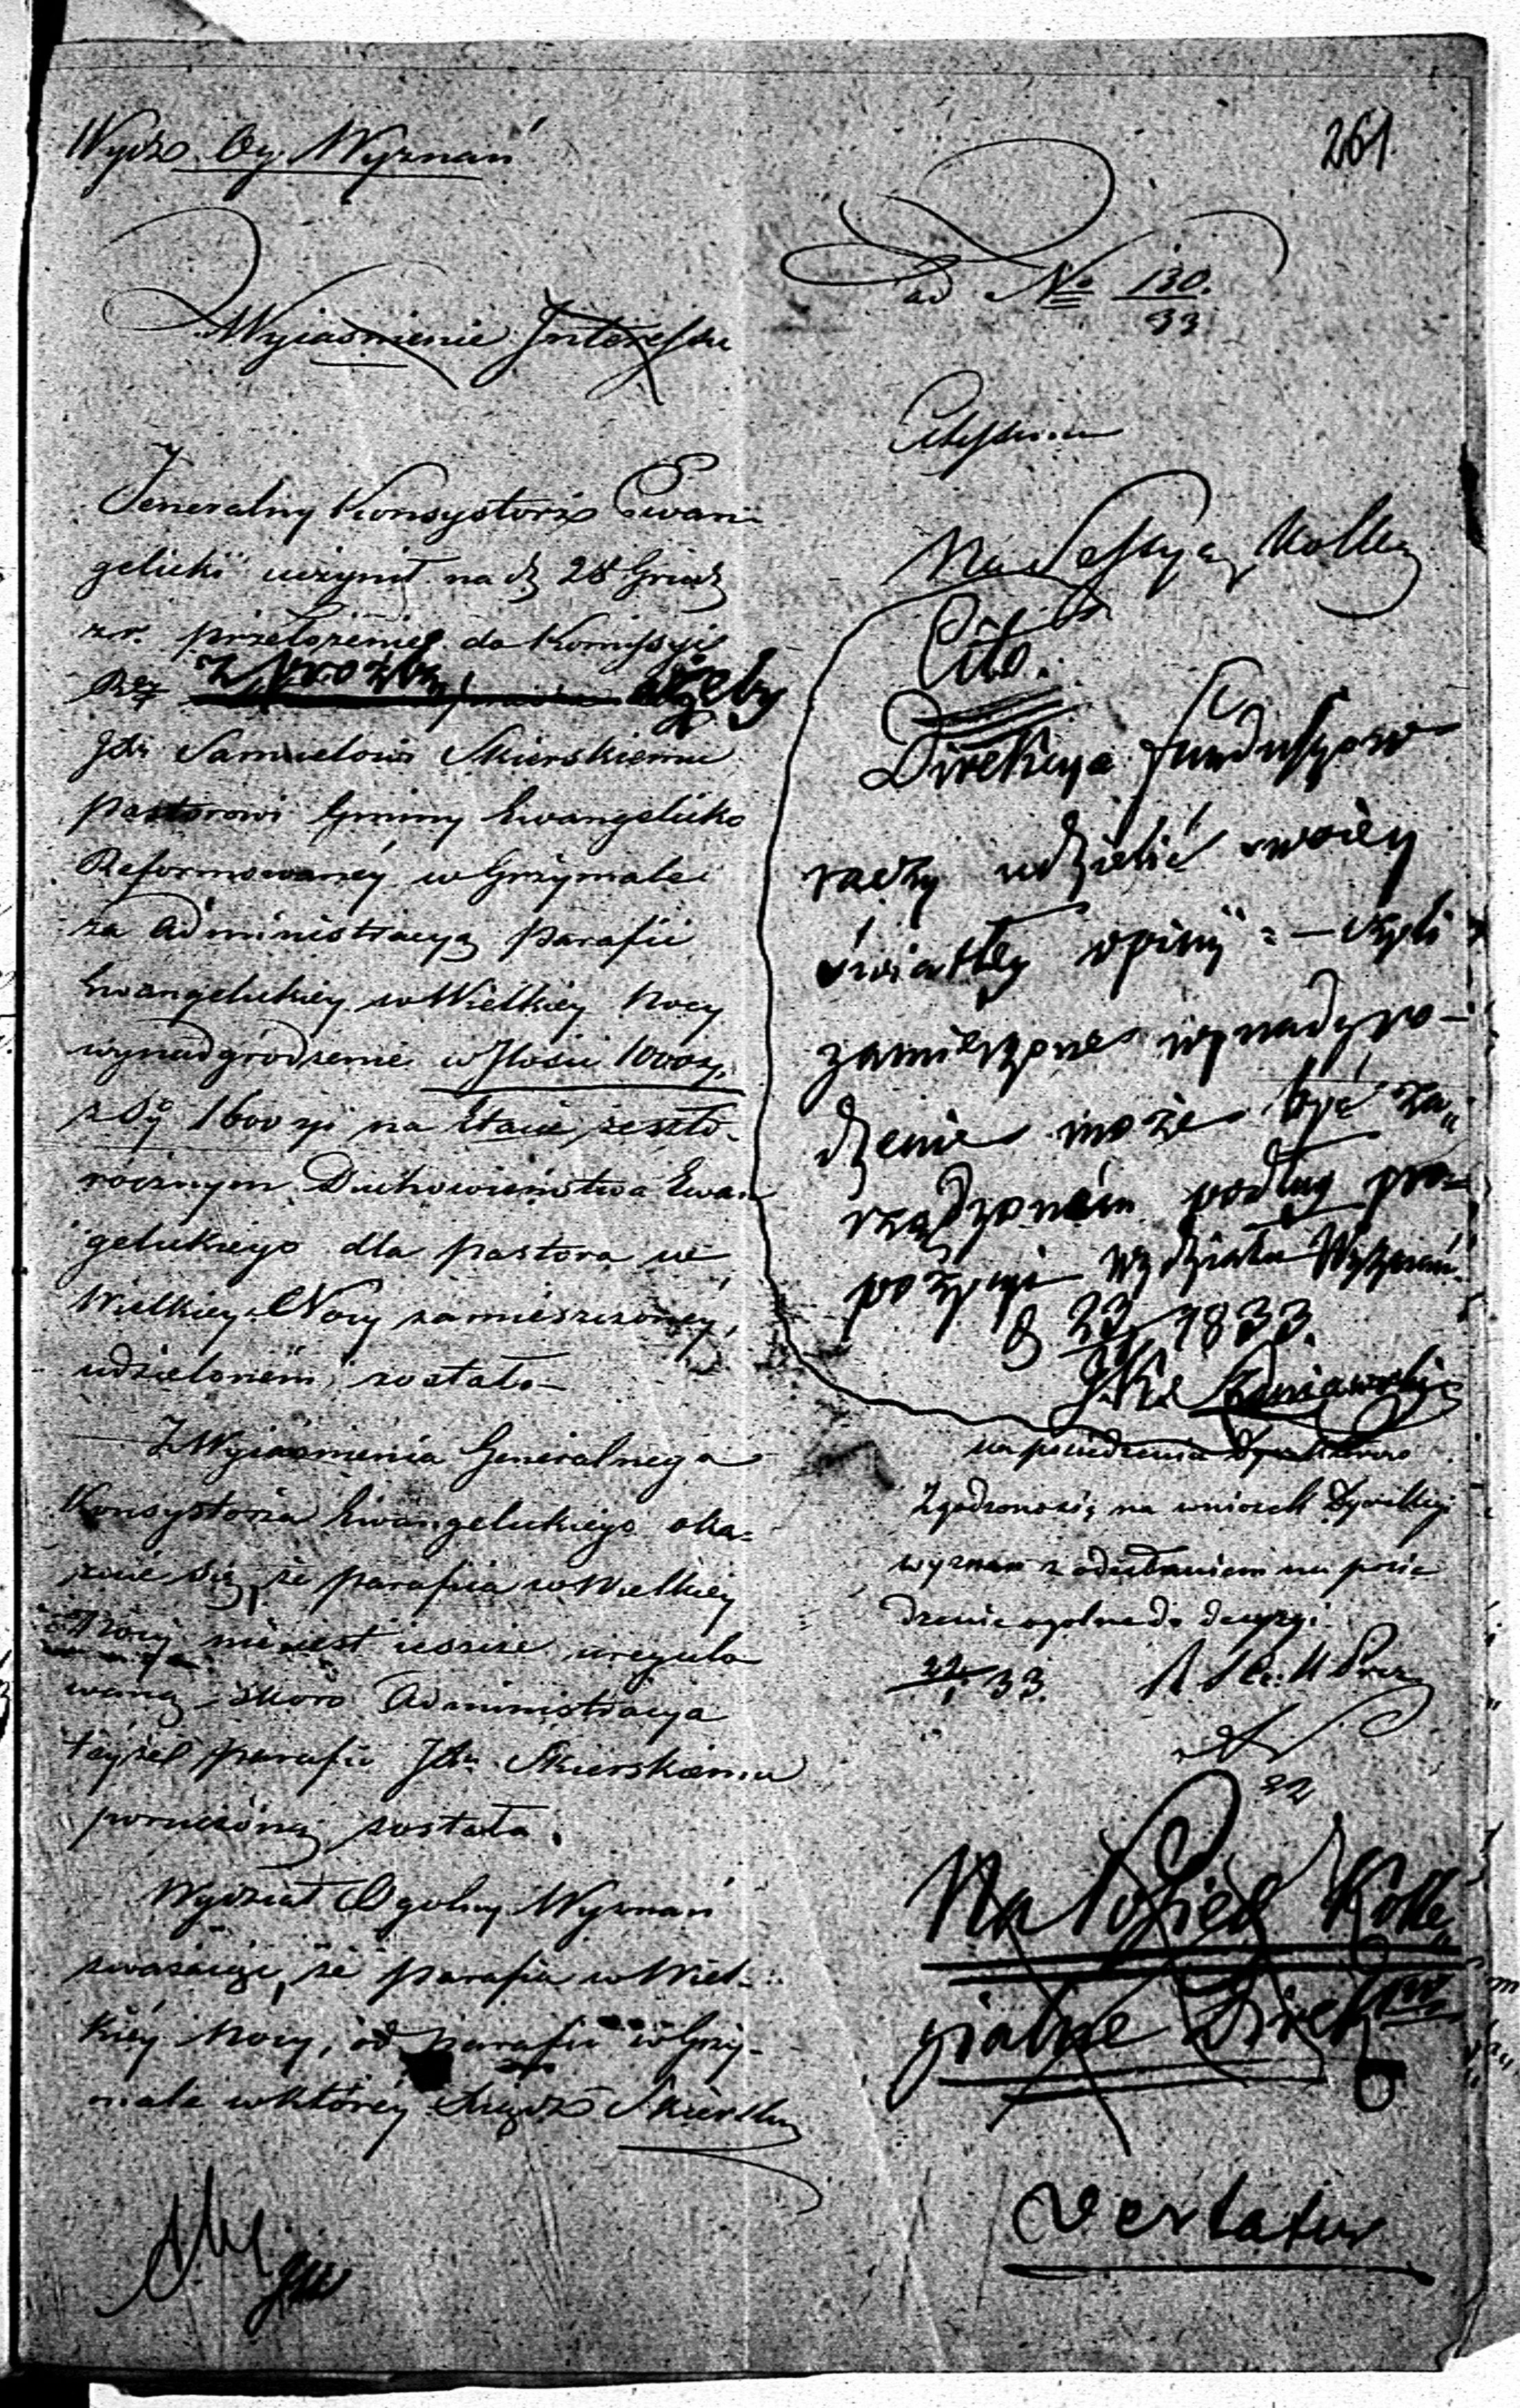 Wydz. Og. Wyznań
Wyiaśnienie Interessu
Jeneralny Konsystorz Ewan-
gelicki uczynił na d. 28 Grud.
z. r. przełożenie do Kommissyi
Rz. z prozbą ażeby
JXu Samuelowi Skierskiemu
pastorowi Gminy Ewangelicko
Reformowaney w Grzymale
za Administracyą parafii
Ewangelickiey w Wielkiey Nocy
wynadgrodzenie w Ilości 1000 zł.
z Sy 1600 zł na Etacie zeszło-
rocznym Duchowieństwa Ewan-
gelickiego dla pastora w
Wielkiey Nocy zamieszczoney,
udzielonem zostało
Z Wyiaśnienia Generalnego
Konsystorza Ewangelickiego oka-
zuie się, że parafia w Wielkiey
Nocy nie iest ieszcze uregulo
waną, skoro Administracya
teyże parafii JXu Skierskiemu
poruczoną została.
Wydział Ogolny Wyznań
zważaiąc, że parafia w Wiel-
kiey Nocy, od parafii w Grzy-
male w którey Xiądz Skierski
261
ad No 130.
33
Na Sessyą Kolleg
Cito.
Direkcya funduszow
raczy udzielić swoiey
światłey opinij = – czyli
zamierzone wynadgro-
dzenie może być za-
rządzonem podług pro-
pozycyi wydziału Wyznań.
d 23/1 1833.
Szaniawski
na posiedzeniu Dyrektorow
Zgodzono się na wniosek Dyrekcyi
wyznań z odesłaniem na posie
dzenie ogolne do decyzyi
22/1 33.
22
Na Posied Kolle-
gialne Direk
Vertatur